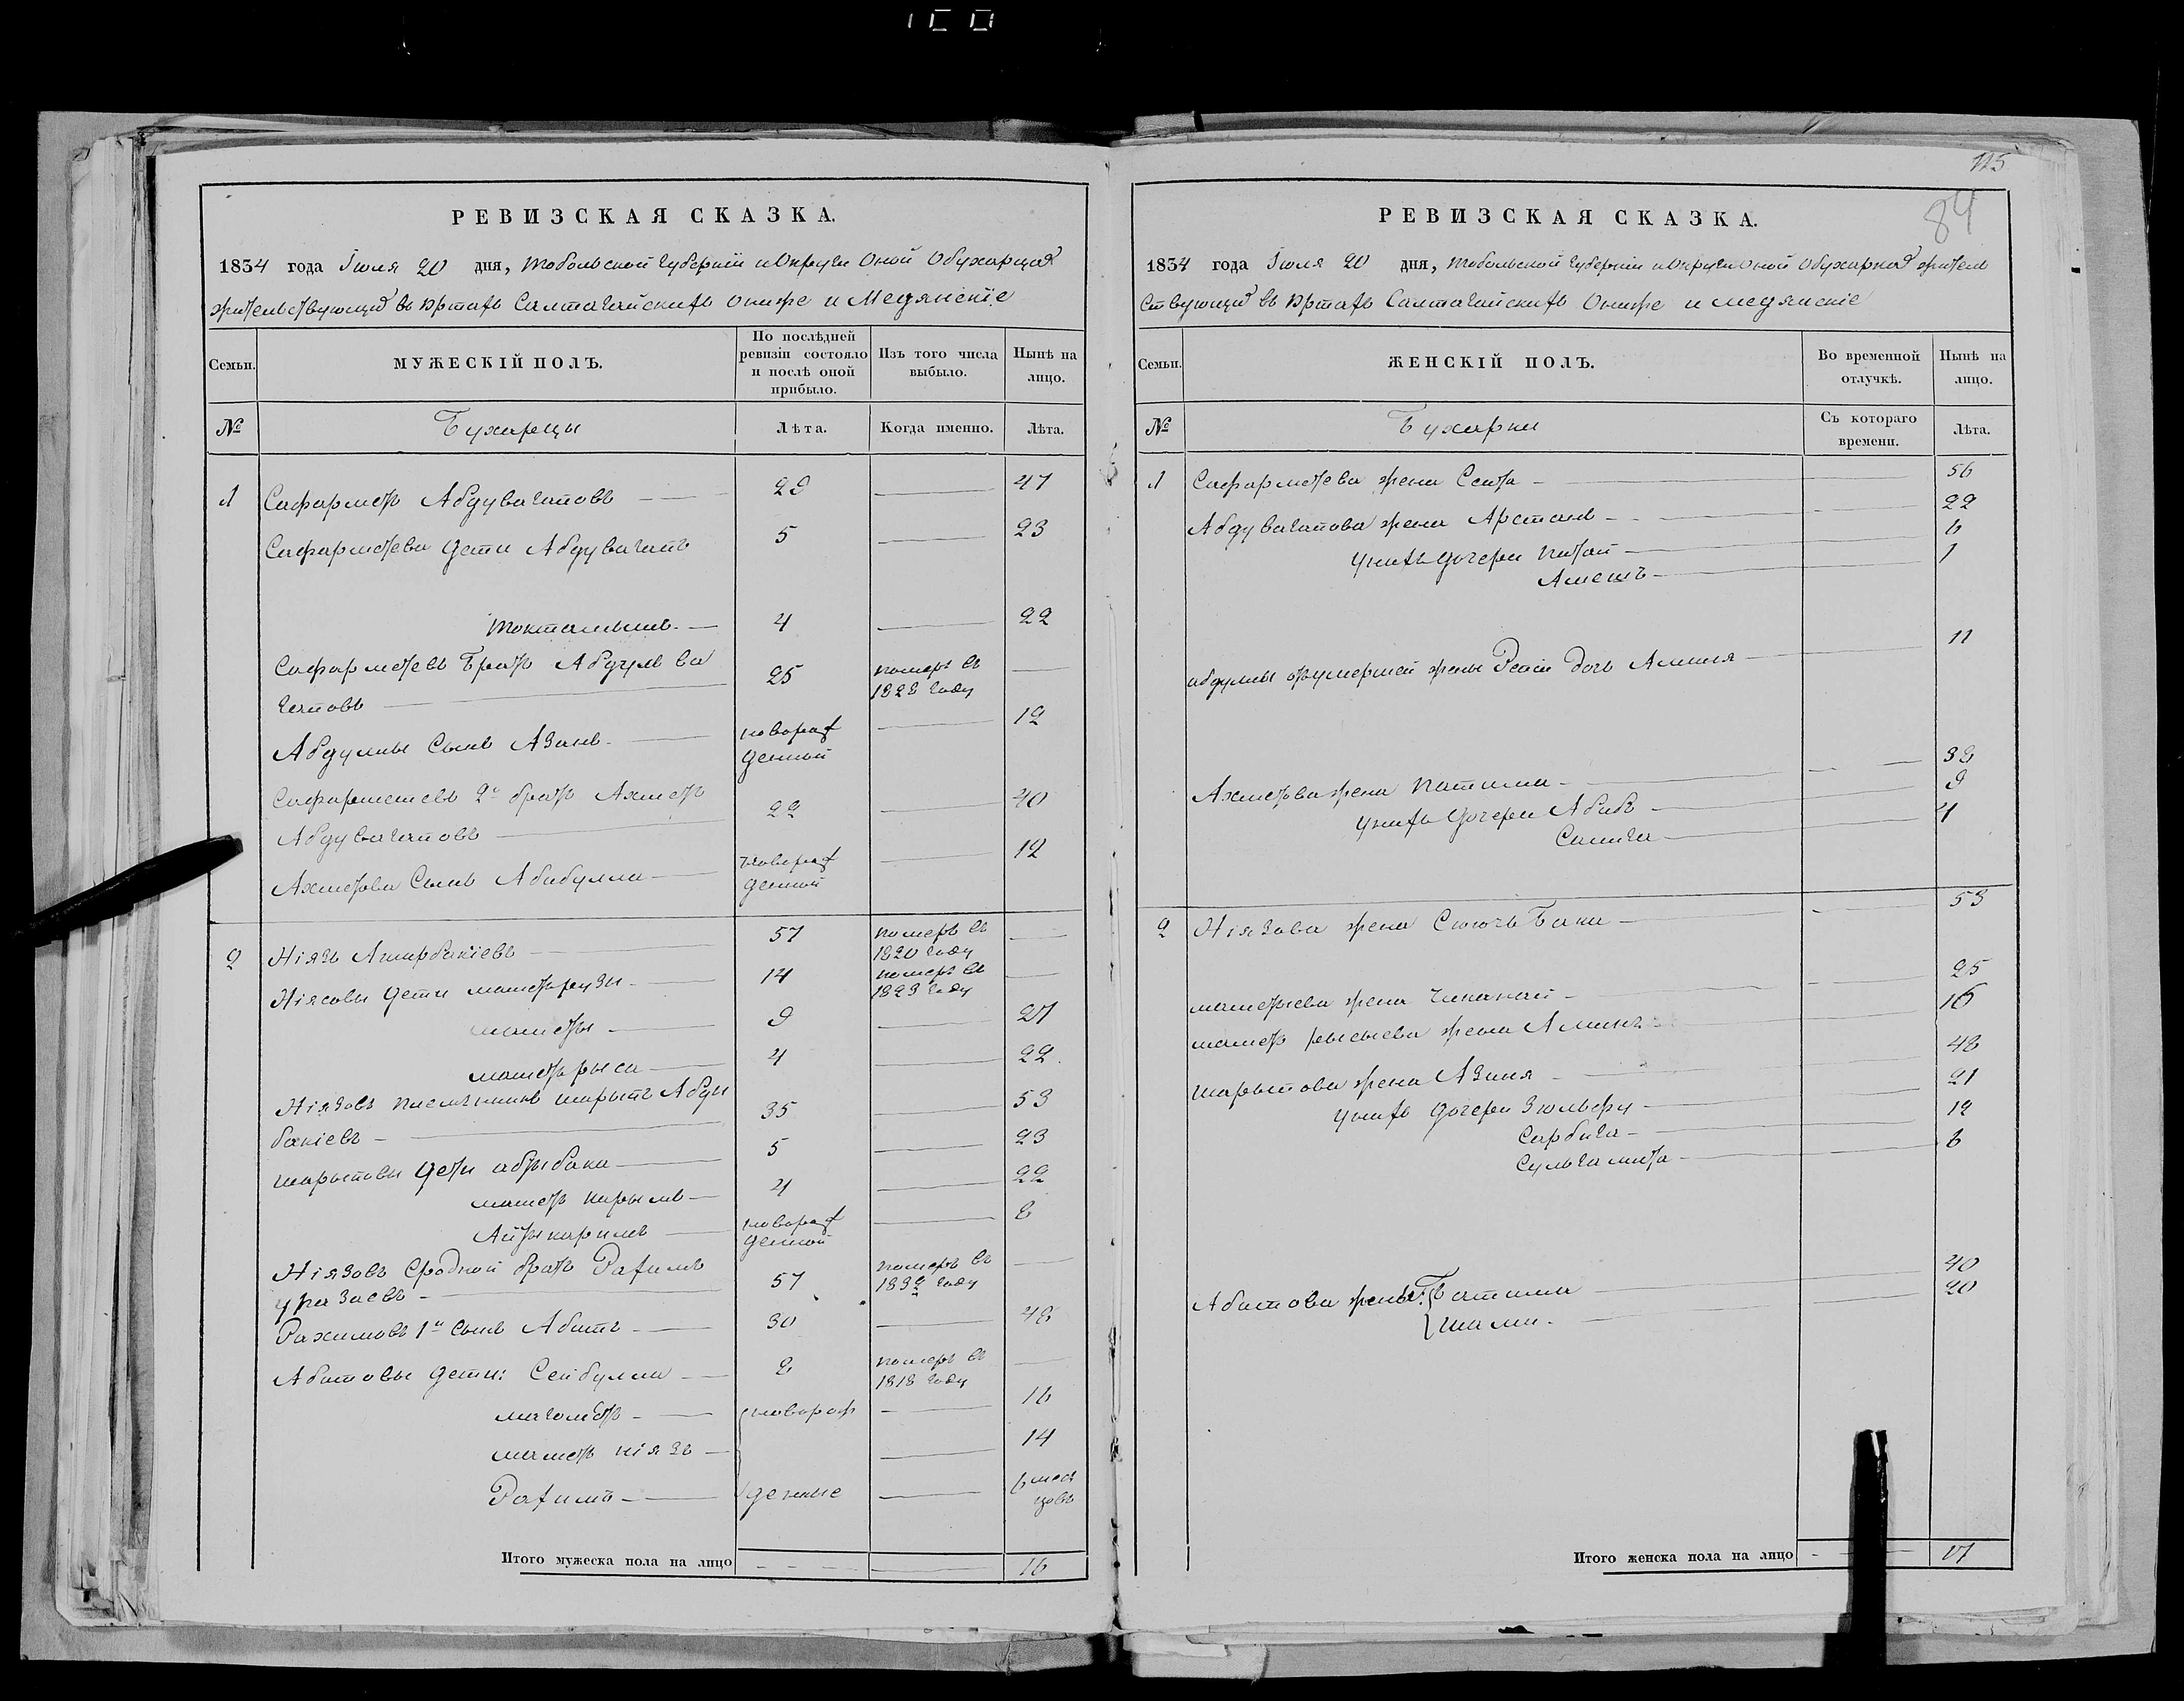 РЕВИЗСКАЯ СКАЗКА.
1834 года Іюля 20 дня, Тобольской Губерніи и Округи Оной Обухарцах
жительствующих въ Юртахъ Салтагайскихъ Ониже и Медянскіе
Семьи.
МУЖЕСКІЙ ПОЛЪ.
По послѣдней ревизіи состояло и послѣ оной прибыло.
Изъ того числа выбыло.
Нынѣ на лицо.
№
Бухарцы
Лѣта.
Когда именно.
Лѣта.
1 Сафарметъ Абдувагаповъ 29 47
Сафарметева дети Абдувагапъ 5 23
Токтамышъ 4 22
Сафарметевъ Братъ Абдулъ ва 25 померъ въ
гаповъ 1828 году
Абдулны Сынъ Азанъ 12
новораж
денный
Сафарметевъ 2й братъ Ахметъ 22 40
Абдувагаповъ
Ахметова Сынъ Абибулла 12
новораж
денной
2 Ніязъ Аширбакіевъ 57 померъ въ
1820 году
Ніясовы дети маметьрузи 14 померъ въ
1823 году
маметы 9 27
маметьрыса 4 22
Ніязовъ племянникъ шарыпъ Абди 35 53
бакіевъ
шарыповы дети абдыбаки 5 23
маметъ карымъ 4 22
Айткаримъ новораж 8
денной
Ніязовъ Сродной братъ Рахимъ 57 померъ въ
уразаевъ 1832 году
Рахимовъ 1й сынъ Абатъ 30 48
Абатовы дети: Сейбулла 2 померъ въ
1818 году
магометъ новораж 16
маметъ ніязъ 14
Рахимъ денные 6 меся
цовъ
Итого мужеска пола на лицо 16
115
84
РЕВИЗСКАЯ СКАЗКА.
1834 года Іюля 20 дня, Тобольской Губерніи и Округи Оной Обухарках житель
ствующих въ Юртахъ Салтагайскихъ Ониже и Медянскіе
Семьи.
ЖЕНСКІЙ ПОЛЪ.
Во временной отлучкѣ.
Нынѣ на лицо.
№
Бухарки
Съ котораго времени.
Лѣта.
1 Сафарметева жена Сеита 56
Абдувагапова жена Арстанъ 22
у нихъ дочери Китай 6
Аметъ 1
абдулны отъ умершей жены дочь Амина 11
Ахметова жена Патима 32
у нихъ дочери Абабъ 9
Салига 4
2 Ніязова жена Сюючь Бака 53
маметыева жена Чиканай 25
маметъ рысыева жена Аминъ 16
шарыпова жена Азиня 48
у нихъ дочери Зюльфу 21
Сарбига 12
Сульгамита 6
Абатова жены: Батима 40
Шами 20
Итого женска пола на лицо 17